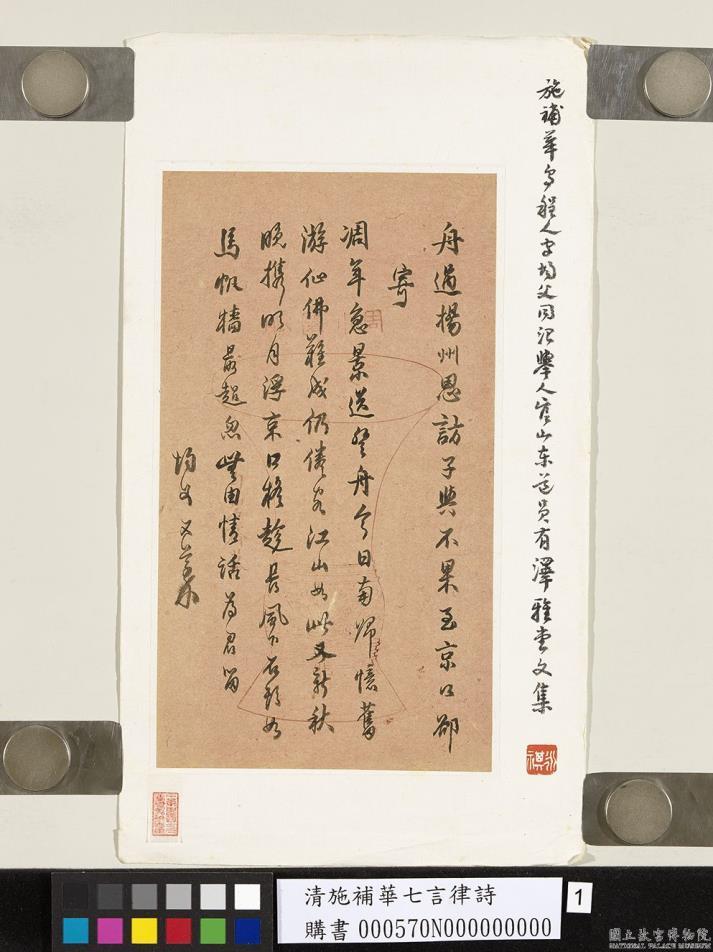 施補華烏程人字均父同治舉人官山東道員有澤雅堂文集
舟過揚州思訪子與不果至京口卻
寄
凋年急景送登舟今日南歸憶舊
游仙佛難成仍作客江山如此又新秋
晚攜明月浮京口獨趁長風下石頭如
馬帆檣最超忽無由情話為君留
均父又草
清施補華七言律詩
購書 000570N000000000
1
國立故宮博物院
NATIONAL PALACE MUSEUM